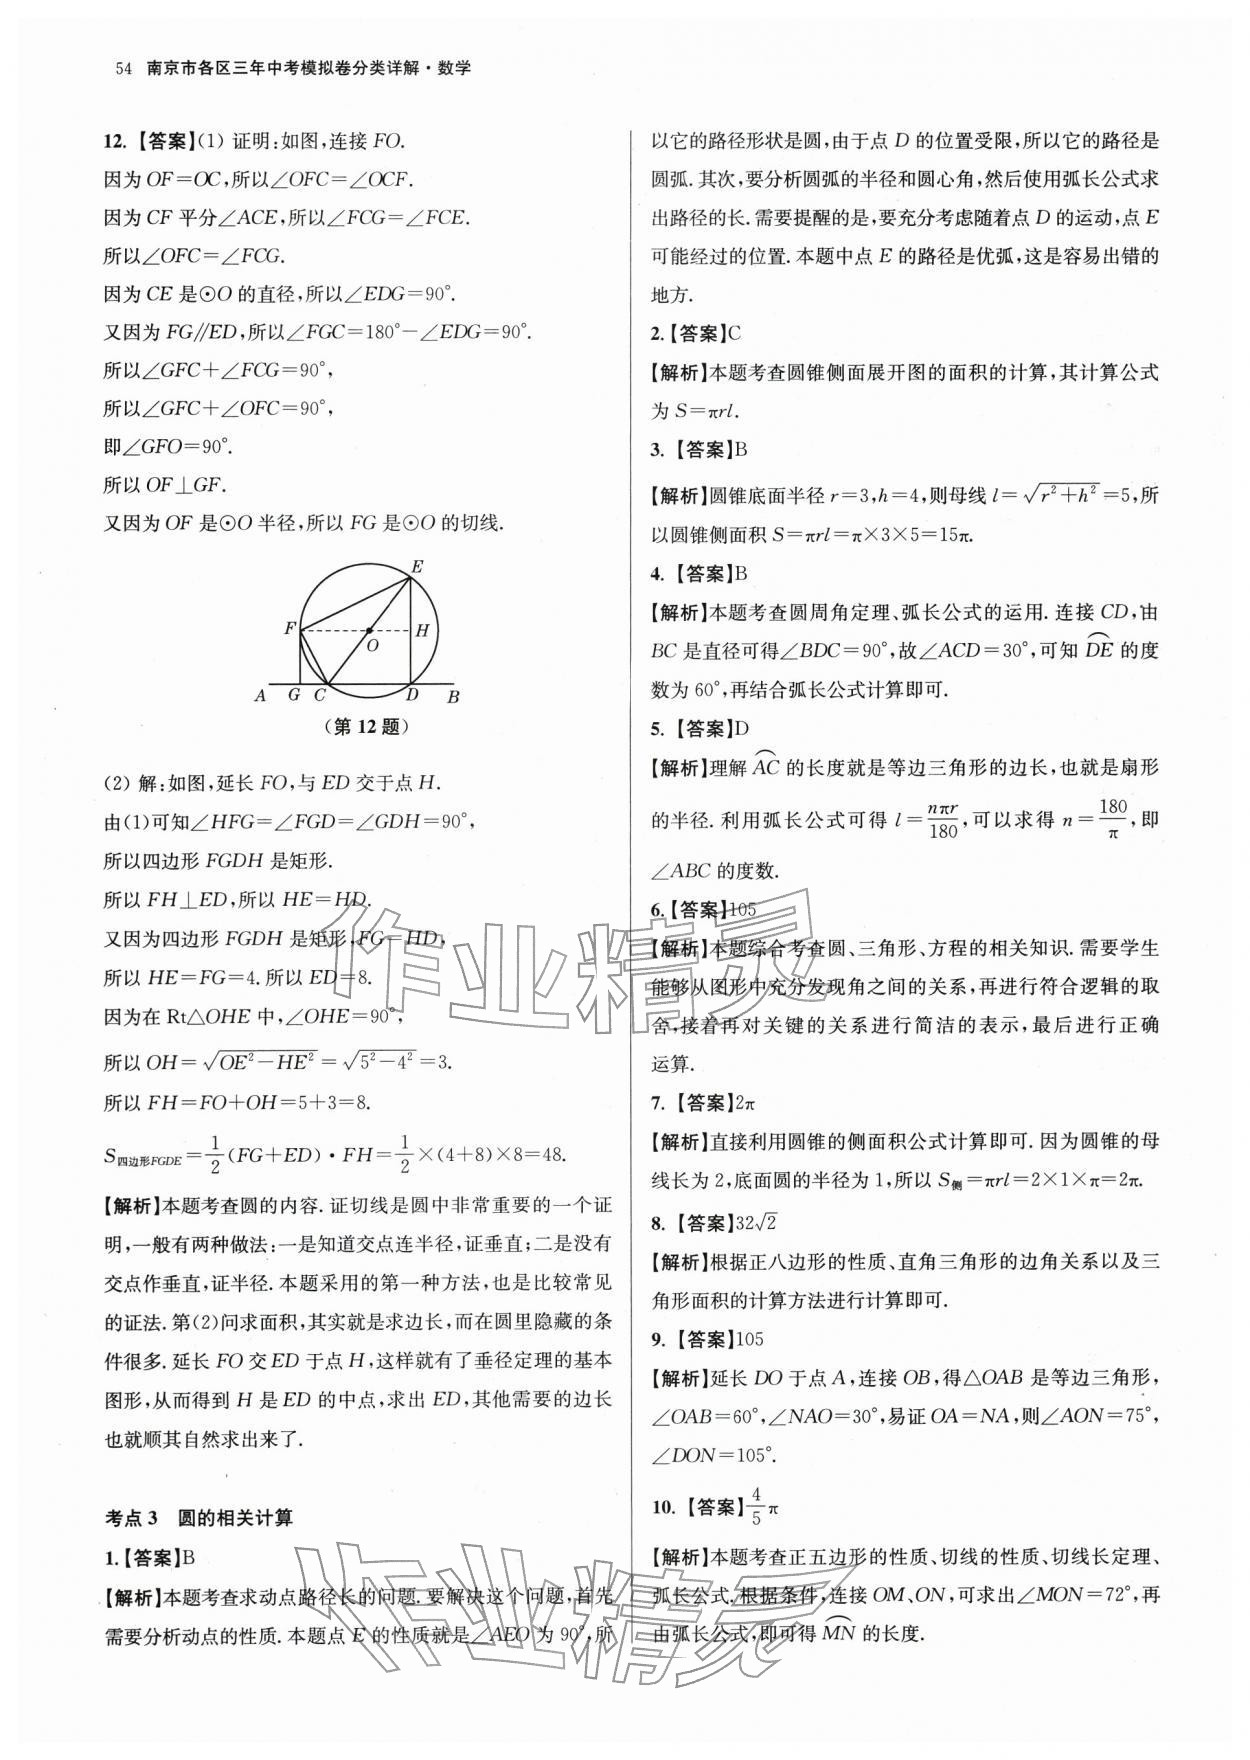 54 南京市各区三年中考模拟卷分类详解·数学
12.【答案】(1) 证明:如图,连接 FO.
因为 OF=OC,所以∠OFC=∠OCF.
因为 CF 平分∠ACE,所以∠FCG=∠FCE.
所以∠OFC=∠FCG.
因为 CE 是⊙O 的直径,所以∠EDG=90°.
又因为 FG∥ED,所以∠FGC=180°-∠EDG=90°.
所以∠GFC+∠FCG=90°,
所以∠GFC+∠OFC=90°,
即∠GFO=90°.
所以 OF⊥GF.
又因为 OF 是⊙O 半径,所以 FG 是⊙O 的切线.
E
F
H
O
A G C D B
(第 12 题)
(2) 解:如图,延长 FO,与 ED 交于点 H.
由(1)可知∠HFG=∠FGD=∠GDH=90°,
所以四边形 FGDH 是矩形.
所以 FH⊥ED,所以 HE=HD.
又因为四边形 FGDH 是矩形,FG=HD,
所以 HE=FG=4.所以 ED=8.
因为在 Rt△OHE 中,∠OHE=90°,
所以 OH=√(OE²-HE²)=√(5²-4²)=3.
所以 FH=FO+OH=5+3=8.
S四边形FGDE=1/2(FG+ED)·FH=1/2×(4+8)×8=48.
【解析】本题考查圆的内容.证切线是圆中非常重要的一个证
明,一般有两种做法:一是知道交点连半径,证垂直;二是没有
交点作垂直,证半径.本题采用的第一种方法,也是比较常见
的证法.第(2)问求面积,其实就是求边长,而在圆里隐藏的条
件很多.延长 FO 交 ED 于点 H,这样就有了垂径定理的基本
图形,从而得到 H 是 ED 的中点,求出 ED,其他需要的边长
也就顺其自然求出来了.
考点 3 圆的相关计算
1.【答案】B
【解析】本题考查求动点路径长的问题.要解决这个问题,首先
需要分析动点的性质.本题点 E 的性质就是∠AEO 为 90°,所
以它的路径形状是圆,由于点 D 的位置受限,所以它的路径是
圆弧.其次,要分析圆弧的半径和圆心角,然后使用弧长公式求
出路径的长.需要提醒的是,要充分考虑随着点 D 的运动,点 E
可能经过的位置.本题中点 E 的路径是优弧,这是容易出错的
地方.
2.【答案】C
【解析】本题考查圆锥侧面展开图的面积的计算,其计算公式
为 S=πrl.
3.【答案】B
【解析】圆锥底面半径 r=3,h=4,则母线 l=√(r²+h²)=5,所
以圆锥侧面积 S=πrl=π×3×5=15π.
4.【答案】B
【解析】本题考查圆周角定理、弧长公式的运用.连接 CD,由
BC 是直径可得∠BDC=90°,故∠ACD=30°,可知 ⌒DE 的度
数为 60°,再结合弧长公式计算即可.
5.【答案】D
【解析】理解 ⌒AC 的长度就是等边三角形的边长,也就是扇形
的半径.利用弧长公式可得 l=nπr/180,可以求得 n=180/π,即
∠ABC 的度数.
6.【答案】105
【解析】本题综合考查圆、三角形、方程的相关知识.需要学生
能够从图形中充分发现角之间的关系,再进行符合逻辑的取
舍,接着再对关键的关系进行简洁的表示,最后进行正确
运算.
7.【答案】2π
【解析】直接利用圆锥的侧面积公式计算即可.因为圆锥的母
线长为 2,底面圆的半径为 1,所以 S侧=πrl=2×1×π=2π.
8.【答案】32√2
【解析】根据正八边形的性质、直角三角形的边角关系以及三
角形面积的计算方法进行计算即可.
9.【答案】105
【解析】延长 DO 于点 A,连接 OB,得△OAB 是等边三角形,
∠OAB=60°,∠NAO=30°,易证 OA=NA,则∠AON=75°,
∠DON=105°.
10.【答案】4/5π
【解析】本题考查正五边形的性质、切线的性质、切线长定理、
弧长公式.根据条件,连接 OM、ON,可求出∠MON=72°,再
由弧长公式,即可得 ⌒MN 的长度.
作业精灵
作业精灵